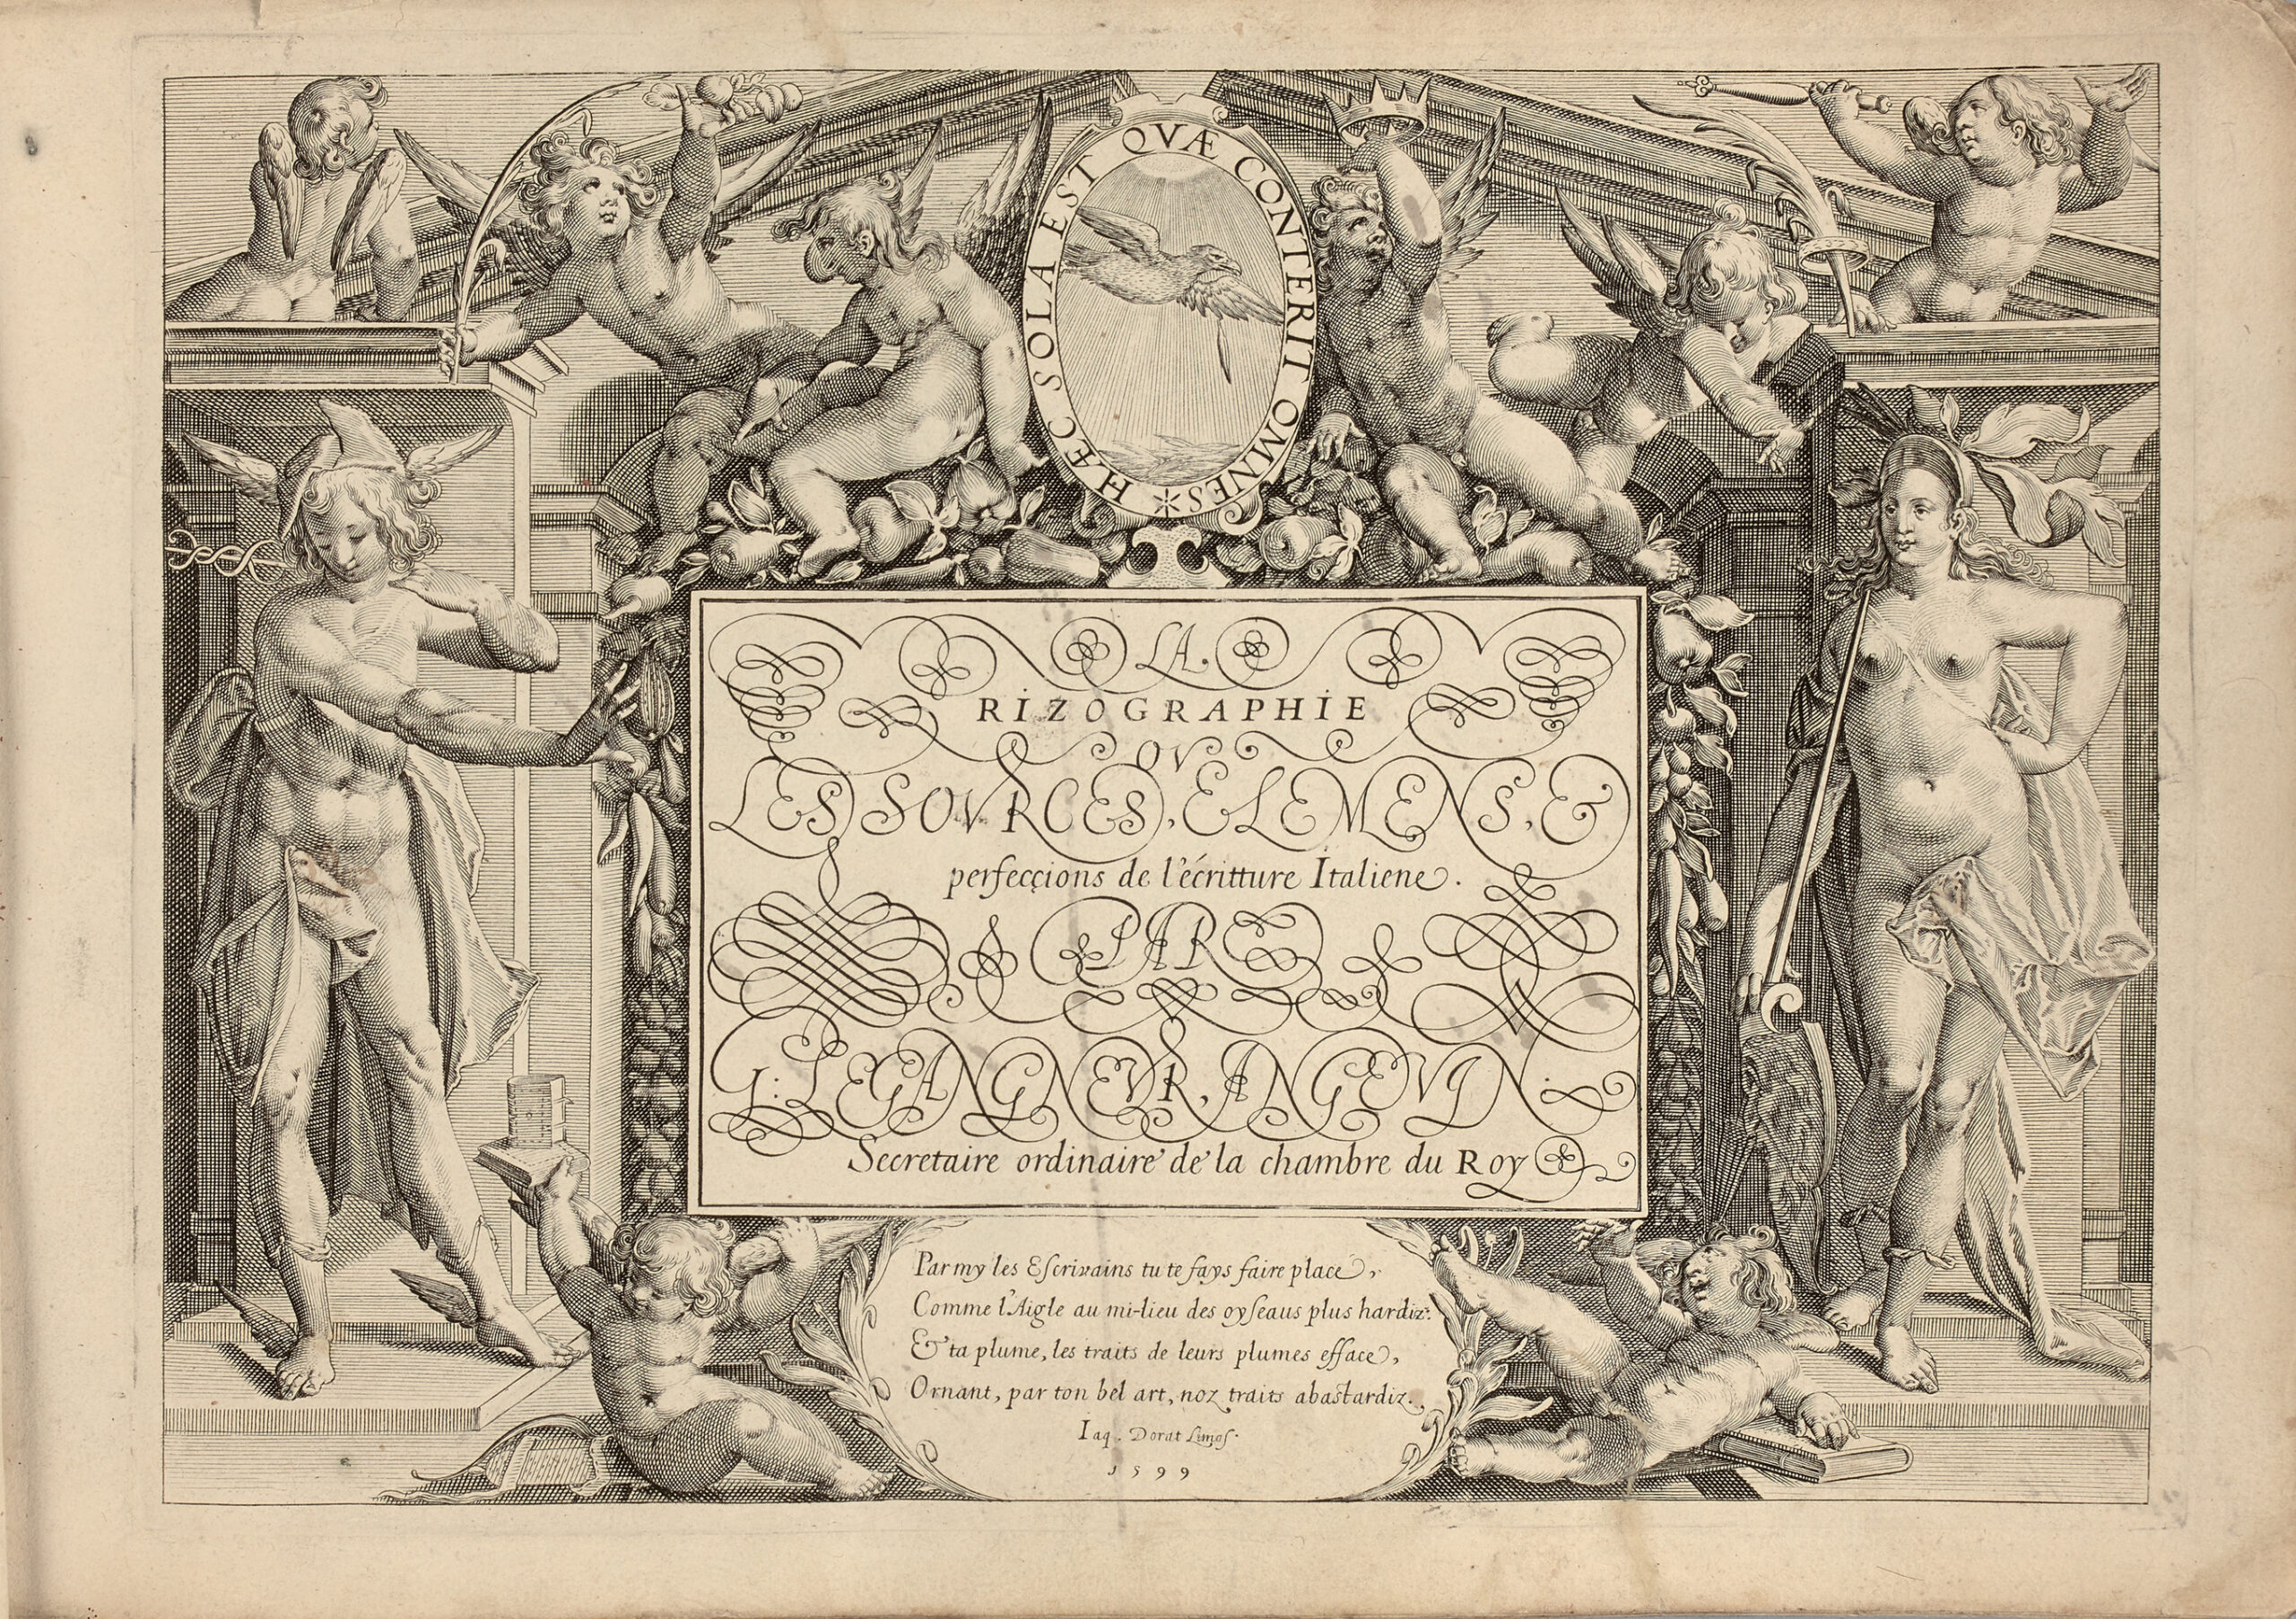 HÆC SOLA EST QVÆ CONTERIT OMNES *
LA.
RIZOGRAPHIE
OV
LES SOVRCES, ELEMENS, &
perfecçions de l'écritture Italiene.
PAR
I. LEGANGNEVR, ANGEVIN.
Secretaire ordinaire de la chambre du Roy
Parmy les Escrivains tu te fays faire place,
Comme l'Aigle au mi-lieu des oyseaus plus hardiz:
& ta plume, les traits de leurs plumes efface,
Ornant, par ton bel art, noz traits abastardiz.
Iaq. Dorat Limos.
1599